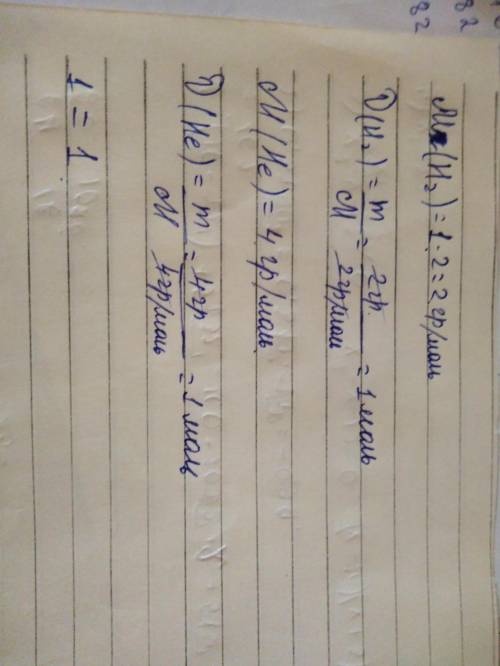 M(H₂) = 1·2 = 2 гр/моль
ν(H₂) = m/M = 2гр/2гр/моль = 1 моль
M(He) = 4 гр/моль
ν(He) = m/M = 4гр/4гр/моль = 1 моль
1 = 1
82
82